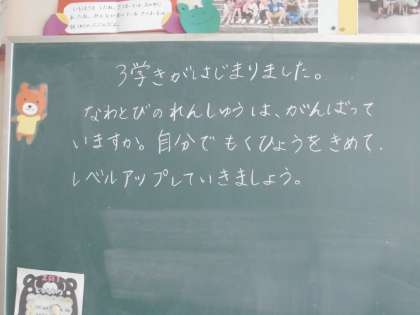 3学きがはじまりました。
なわとびのれんしゅうは、がんばって
いますか。自分でもくひょうをきめて、
レベルアップしていきましょう。